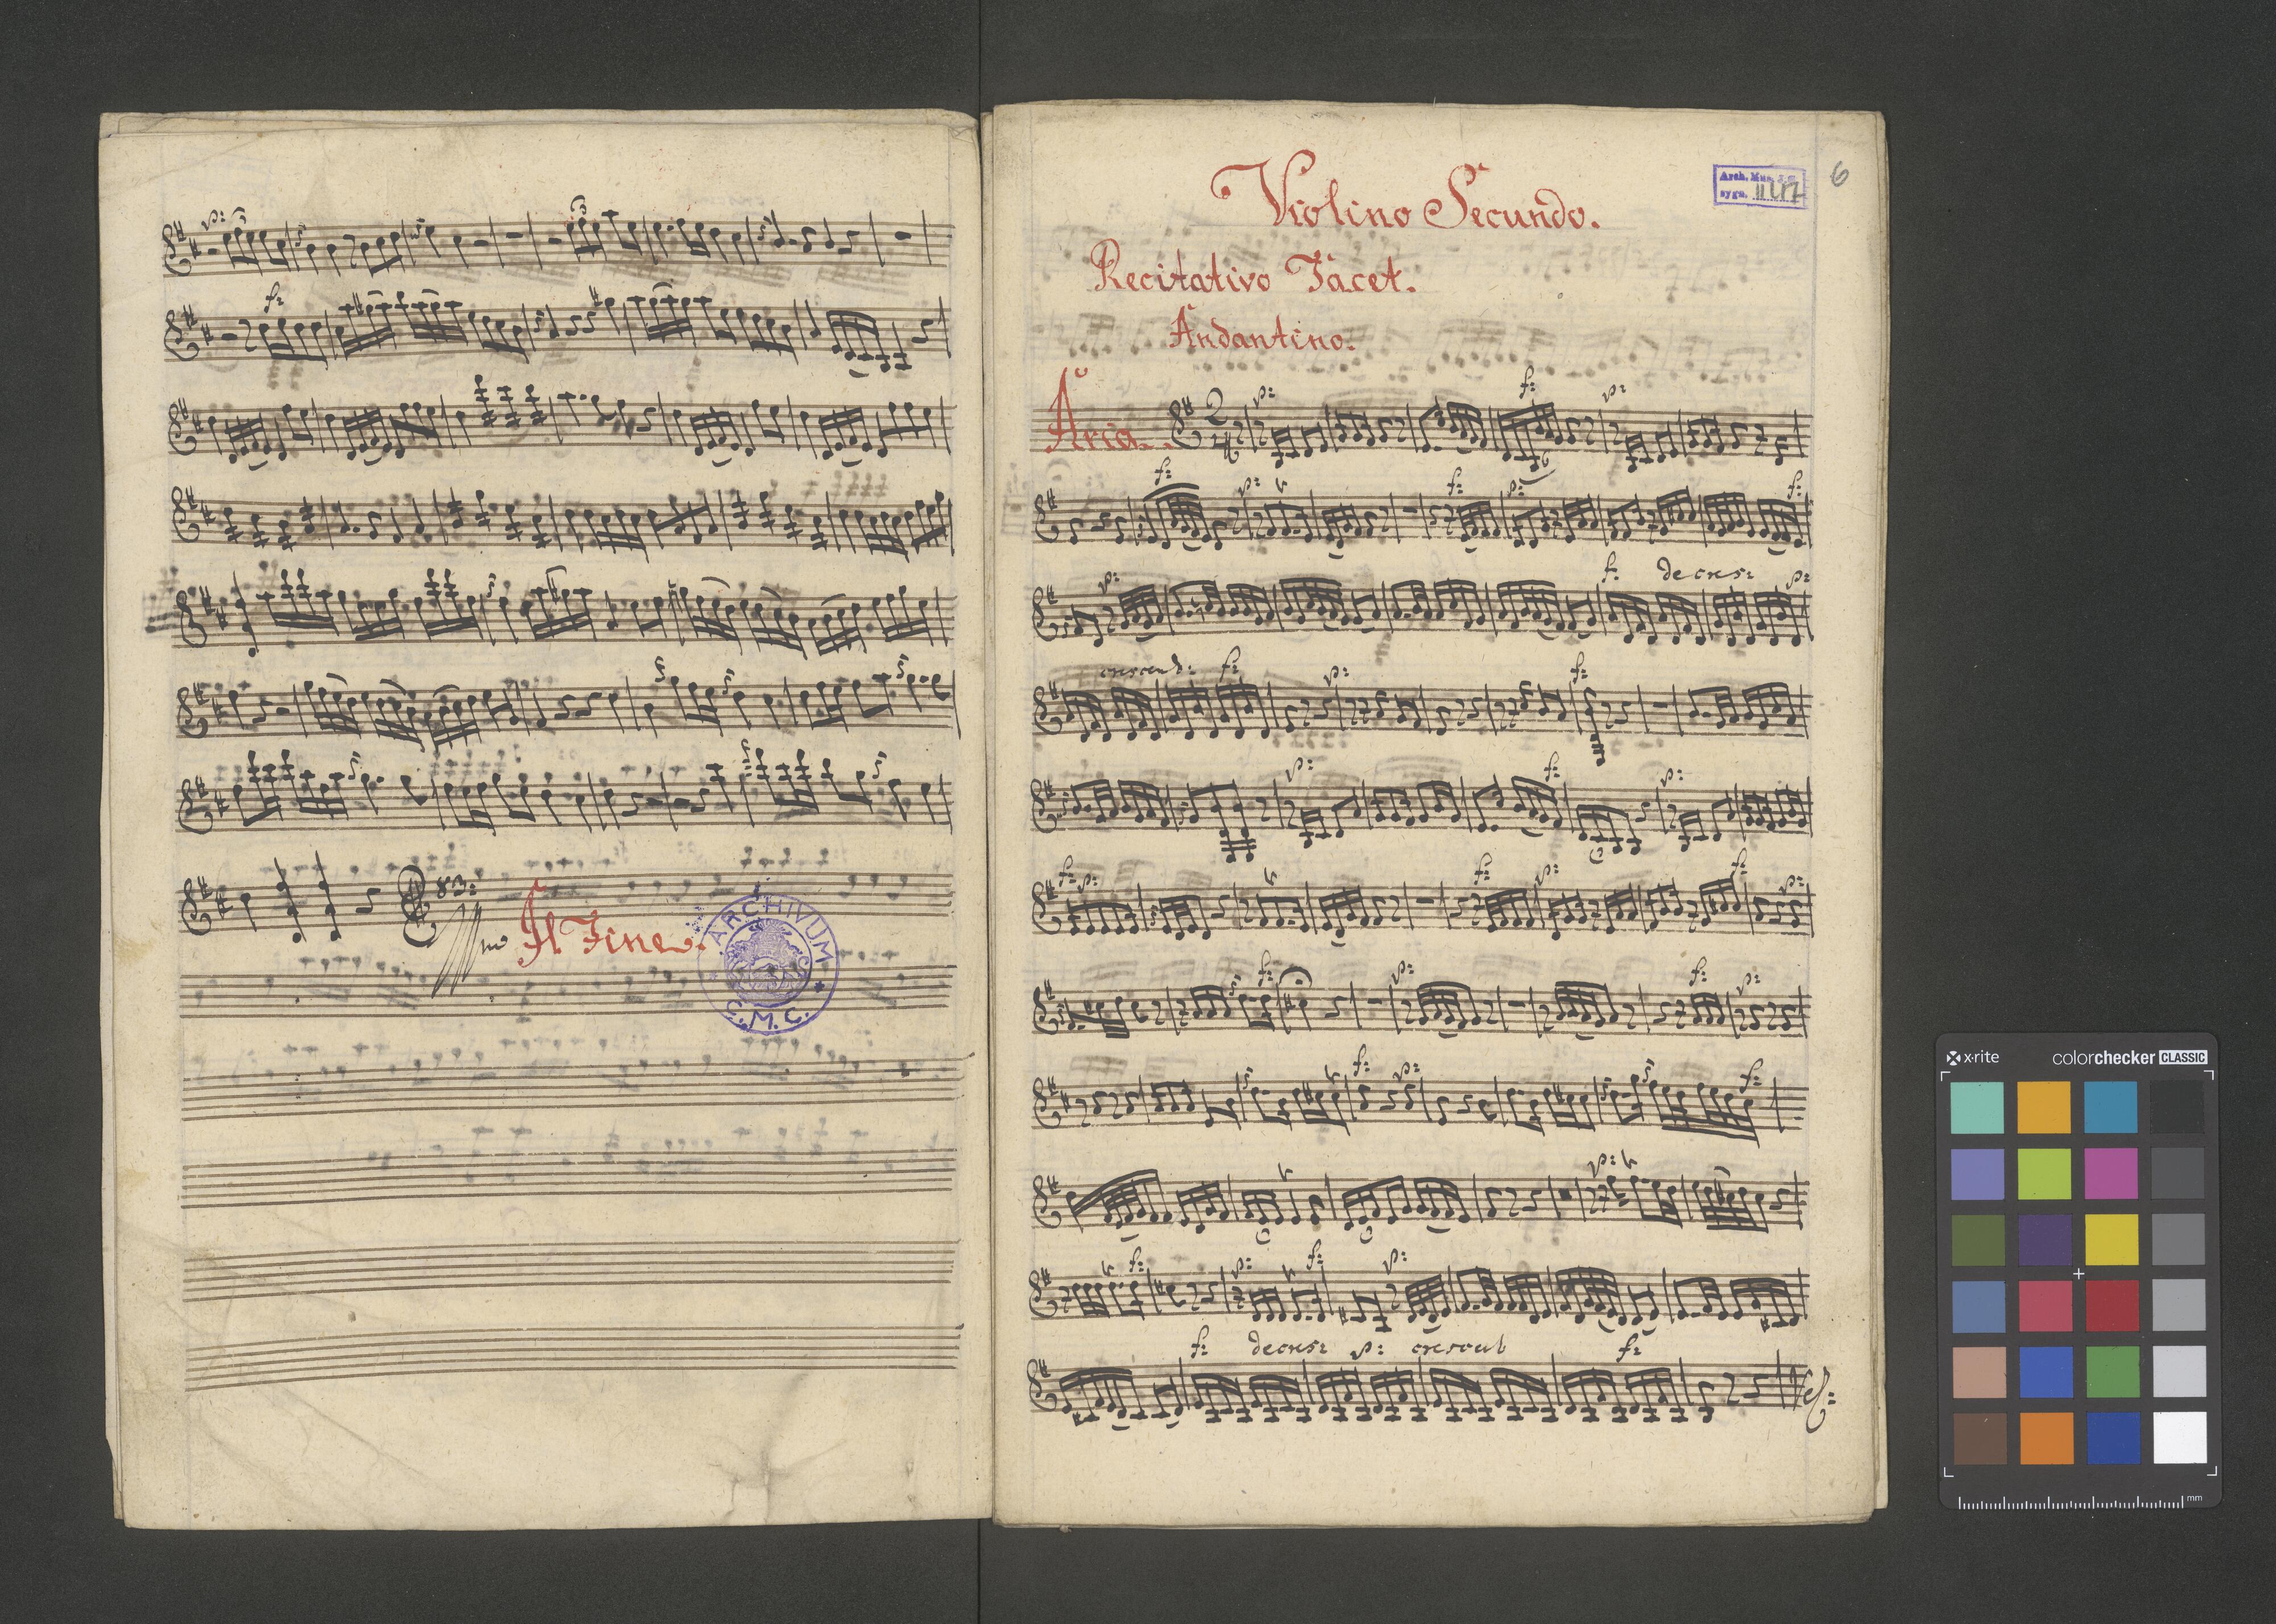 p:
f:
Il Fine.
ARCHIVUM
C.M.C.
Violino Secundo.
Arch. Mus.
sygn.
6
Recitativo Tacet.
Andantino.
Aria.
p: f: p:
f: p: f: p: f:
p: f: decres: p:
crescend: f: p: f:
p: f: p:
f: p: f: p: f: p:
f: p: f: p:
f: p: f:
p:
f: p: f: p:
f: decres: p: f:
x·rite colorchecker CLASSIC
mm